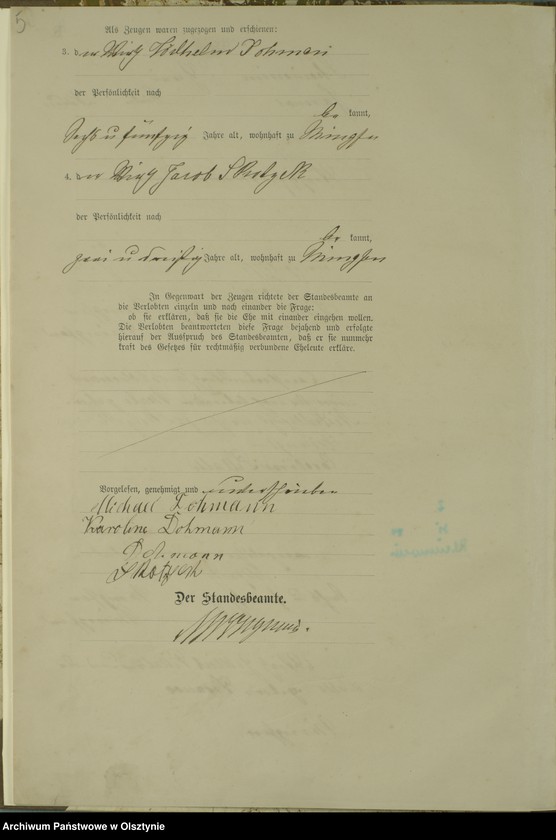 5
Als Zeugen waren zugezogen und erschienen:
3. der Wirth Wilhelm Dohman
der Persönlichkeit nach
be kannt,
Sechs u fünfzig Jahre alt, wohnhaft zu Mingfen
4. der Wirth Jacob Skotzek
der Persönlichkeit nach
be kannt,
zwei u dreißig Jahre alt, wohnhaft zu Mingfen
In Gegenwart der Zeugen richtete der Standesbeamte an
die Verlobten einzeln und nach einander die Frage:
ob sie erklären, daß sie die Ehe mit einander eingehen wollen.
Die Verlobten beantworteten diese Frage bejahend und erfolgte
hierauf der Ausspruch des Standesbeamten, daß er sie nunmehr
kraft des Gesetzes für rechtmäßig verbundene Eheleute erkläre.
Vorgelesen, genehmigt und unterschrieben
Michael Dohmann
Karoline Dohmann
Dohmann
Skotzek
Der Standesbeamte.
Archiwum Państwowe w Olsztynie